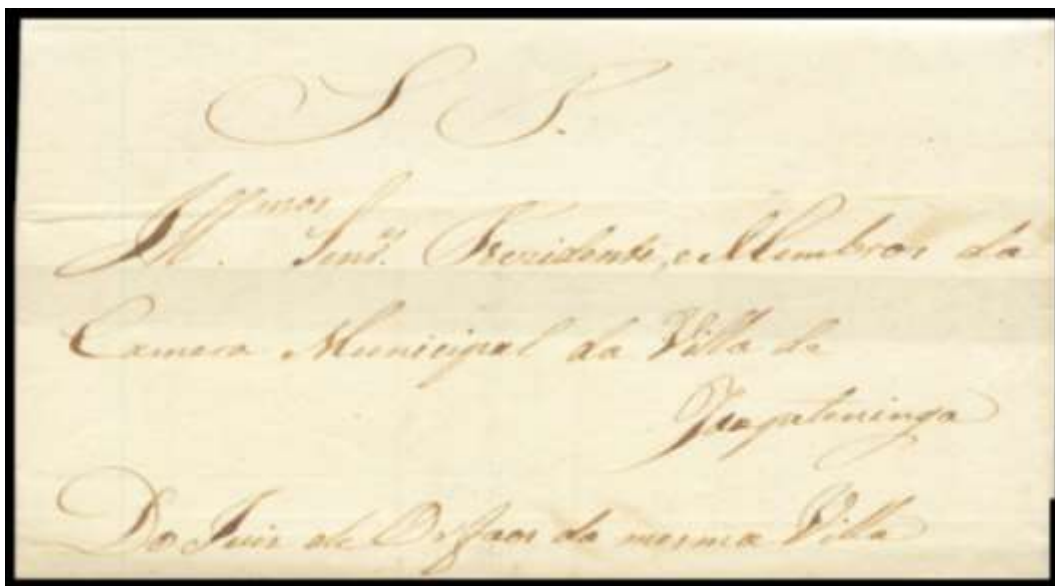 S P.
Ill.mos Snrs. Prezidente, e Membros da
Camera Municipal da Villa de
Itapetininga
Do Juis de Orfaos da mesma Villa